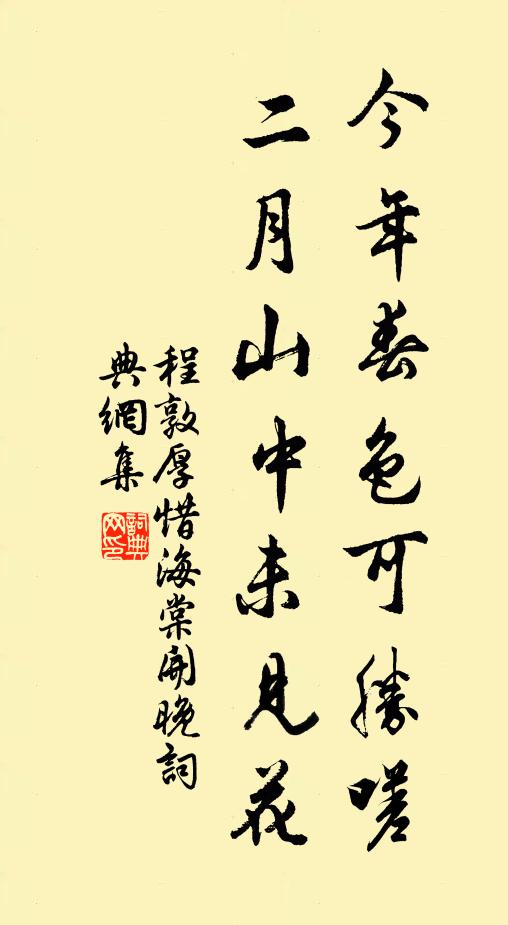 今年春色可勝嗟
二月山中未見花
程敦厚惜海棠開晚詞
典網集
詞典網印